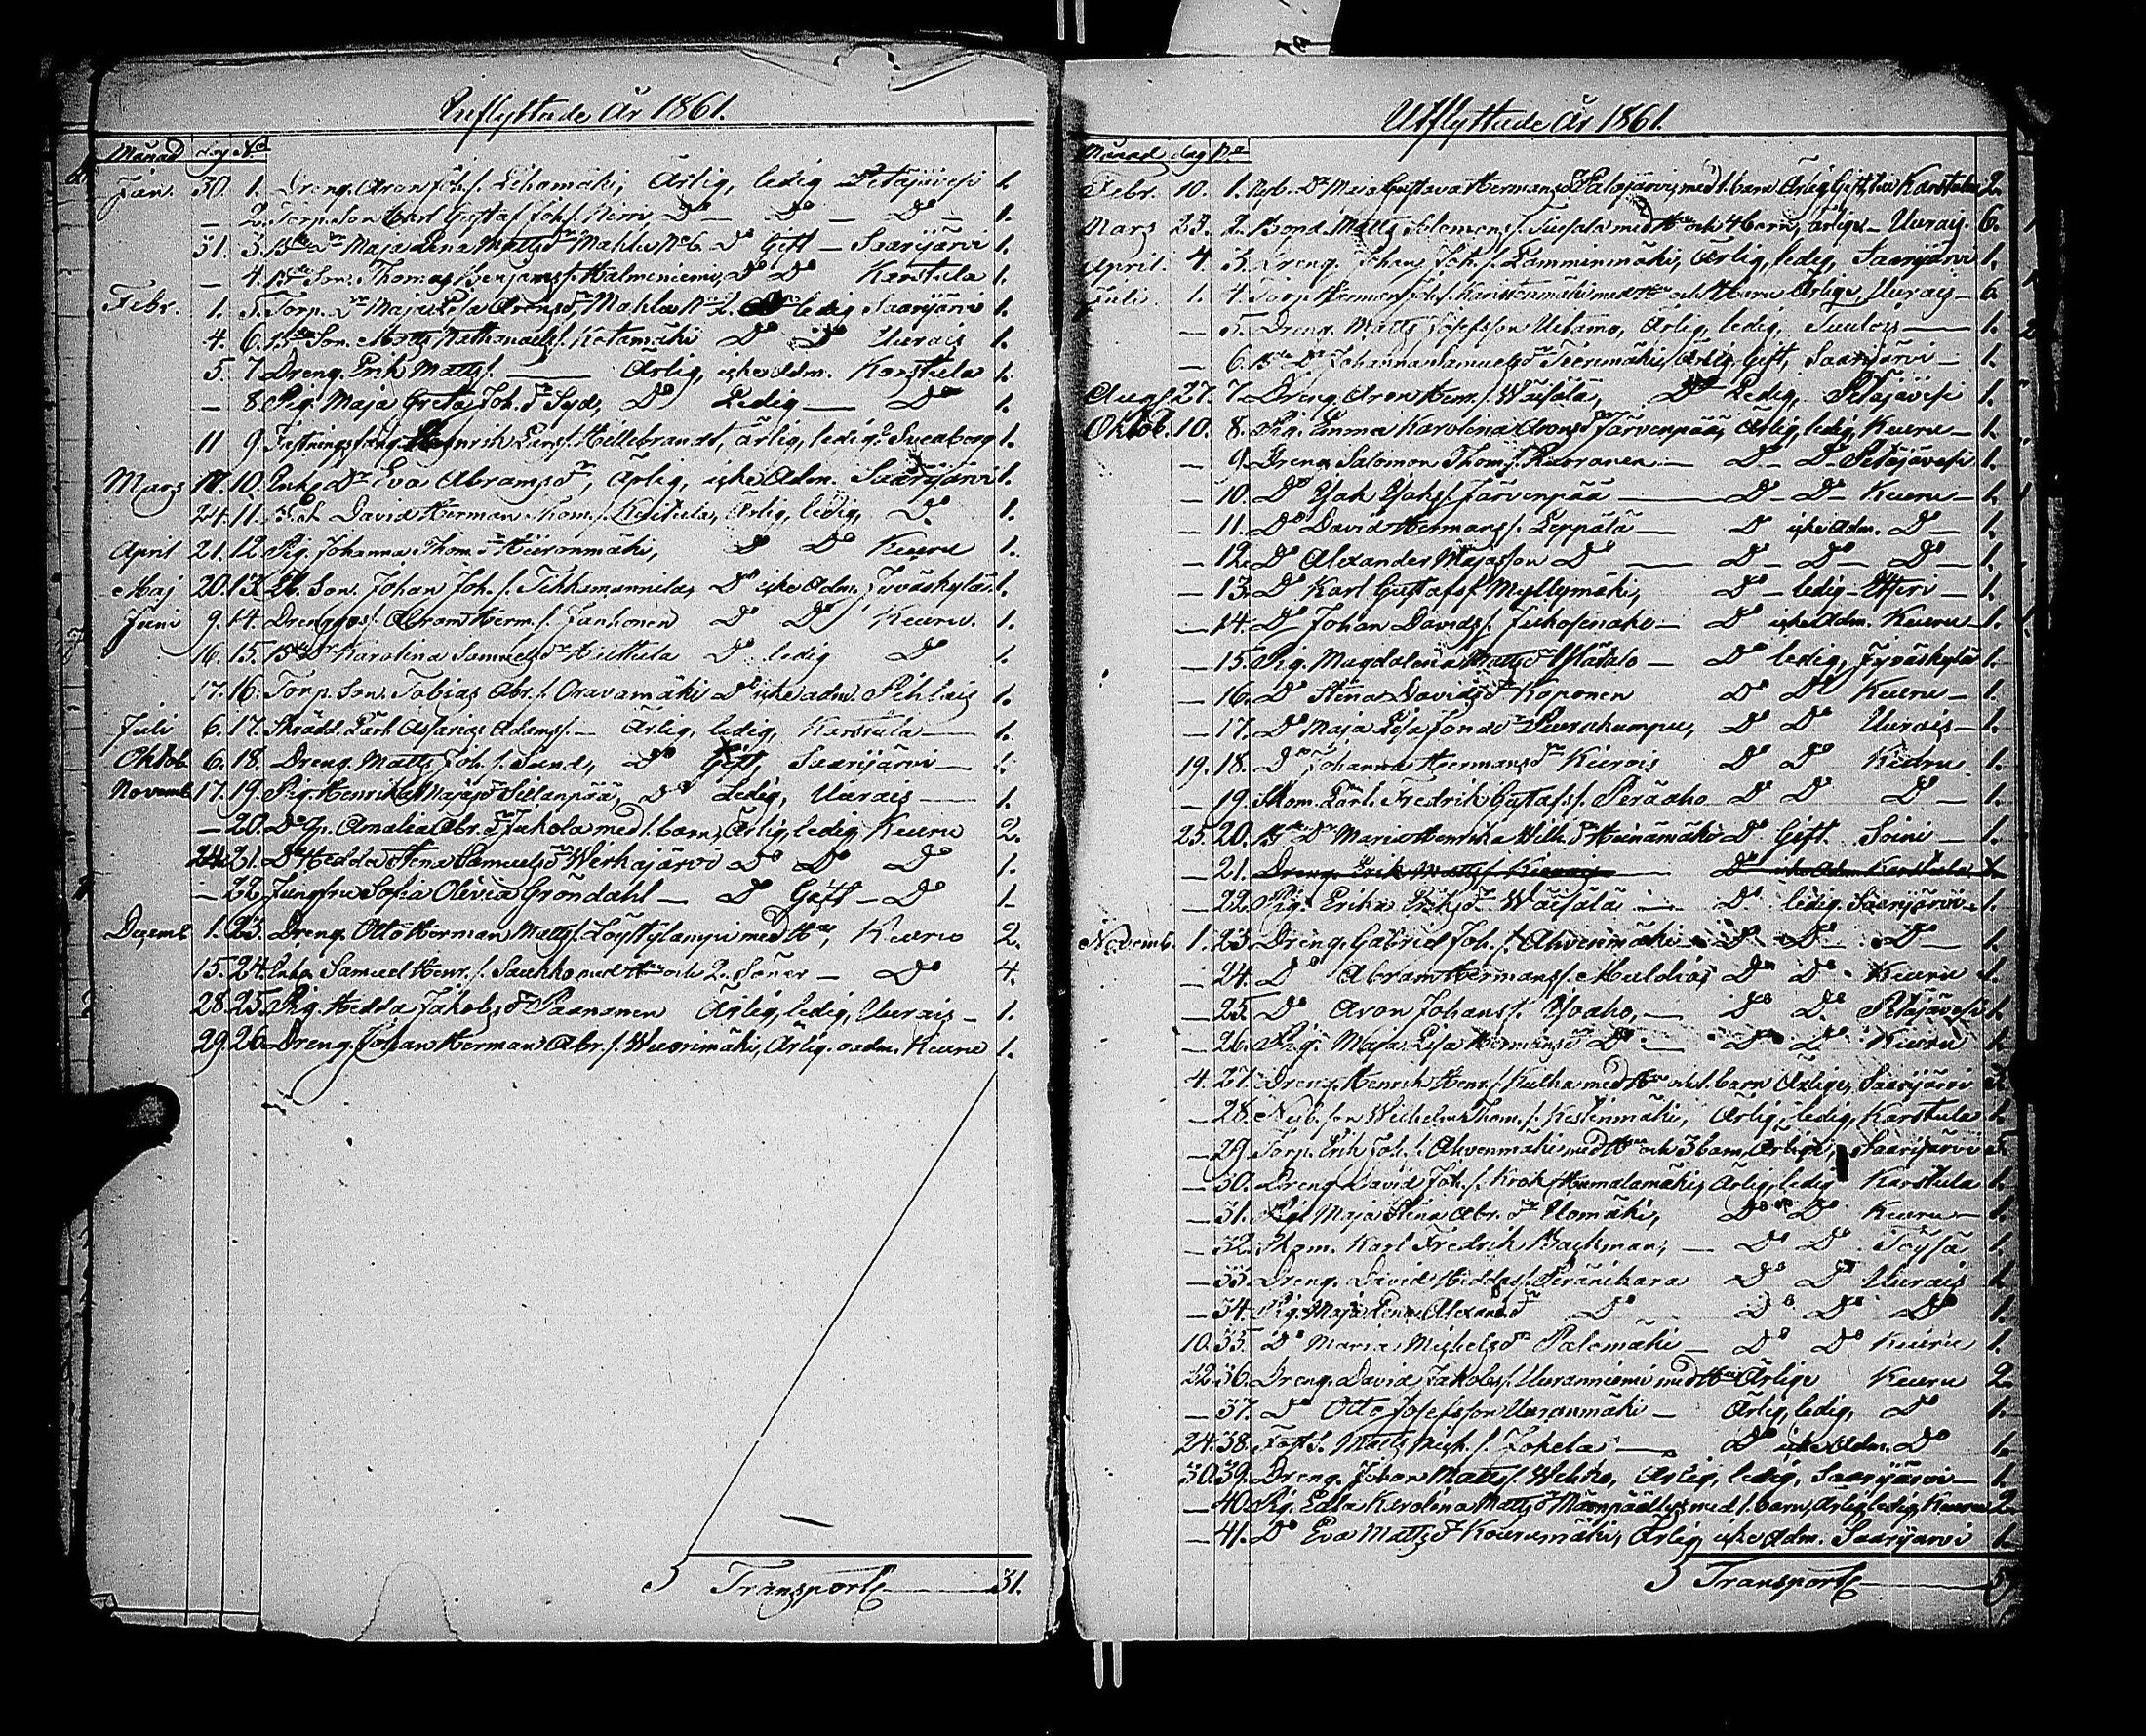 Inflyttade År 1861.
Månad dag No
Jan. 30. 1. Dreng. Aron Joh.s. Lehomäki, Ärlig, ledig Petäjävesi 1.
— 2. Torp. Son Karl Gustaf Joh.s. Do — Do — Do — 1.
31. 3. Bde Dr Maja Lena Mattsdr Mahlu No 6. Do Gift — Saarijärvi 1.
— 4. Bde Son. Thomas Benjams/. Halmeniemi, Do Do Karstula 1.
Febr. 1. 5. Torp. Dr Maja Lisa Aronsdr, Mahlu No 2. Do ledig Saarijärvi 1.
4. 6. Bde Son. Matts Nathanaels/. Kotamäki Do Do Uurais 1.
5. 7. Dreng. Erik Matts/. — Ärlig, icke adm. Karstula 1.
— 8. Pig. Maja Greta Joh.dr Syd, Do Ledig — Do 1.
11 9. Festningsfång. Henrik Hillebrandt, ärlig, ledig, Sveaborg 1.
Mars 17. 10. Enk. Dr Eva Abramsdr, Ärlig, icke Adm. Saarijärvi 1.
24. 11. David Herman Thom./. Ärlig, ledig, Do 1.
April 21. 12. Pig. Johanna Thom.dr Hiironmäki, Do Do Keuru 1.
Maj 20. 13. Son. Johan Joh./. Do icke Adm. Jyväskylä 1.
Juni 9. 14. Abram Herm./. Janhonen Do Do Keuru. 1.
16. 15. Bde Dr Karolina Samuelsdr Huttula Do ledig Do 1.
17. 16. Torp. Son. Tobias Abr./. Oravamäki Do icke adm. Pihlais 1.
Juli 6. 17. Skrädd. Lärl. Assarias Adams/. — Ärlig, ledig, Karstula — 1.
Oktob. 6. 18. Dreng. Matts Joh./. Sund, Do Gift, Saarijärvi — 1.
Novemb. 17. 19. Pig. Henrika Majasdr Sillanpää, Do Ledig, Uurais — 1.
— 20. Do Amalia Abr.dr Jakola med 1. barn, Ärlig, ledig, Keuru 2.
24. 21. Do Hedda Stena Samuelsdr Werkajärvi Do Do Do 1.
— 22. Jungfru Sofia Olivia Gröndahl — Do Gift — Do 1.
Dezemb. 1. 23. Dreng. Otto Herman Matts/. Löyttylampi med Hu, Keuru 2.
15. 24. Samuel Henr./. Saukko med Hu och 2. Söner — Do 4.
28. 25. Pig. Hedda Jakobsdr Paananen Ärlig, ledig, Uurais — 1.
29. 26. Dreng. Johan Herman Abr./. Wuorimäki, Ärlig. oadm. Keuru 1.
Transport — 31.
Utflyttade År 1861.
Månad dag No
Febr. 10. 1. Dr Maja Gustava Hermansdr Palojärvi, med 1. barn Ärlig, Gift, Karstula 2.
Mars 23. 2. Bond. Matts Salomons/. med Hu och 4 barn, ärlige — Uurais. 6.
April. 4. 3. Dreng. Johan Joh./. Lamminmäki, Ärlig, ledig, Saarijärvi 1.
Juli 1. 4. Torp. Herman Joh./. med Hu och 4 barn Ärlige, Uurais — 6.
— 5. Dreng. Matts Josefsson Uitamo, Ärlig, ledig, Tuulos — 1.
— 6. Bde Dr Johanna Samuelsdr Teerimäki, Ärlig, Gift, Saarijärvi — 1.
Aug. 27. 7. Dreng. Aron Henr./. Wäisälä, Do Ledig, Petäjävesi 1.
Oktob. 10. 8. Pig. Emma Karolina Aronsdr Järvenpää, Ärlig, ledig, Keuru — 1.
— 9. Dreng. Salomon Thom./. Ruoranen — Do — Do — Petäjävesi 1.
— 10. Do Isak Isaks/. Järvenpää — Do — Do — Keuru — 1.
— 11. Do David Hermans/. Leppälä — Do icke adm. Do — 1.
— 12. Do Alexander Majasson Do — Do — Do — Do — 1.
— 13. Do Karl Gustafs/. Myllymäki, Do — ledig — Etseri — 1.
— 14. Do Johan Davids/. Do icke Adm. Keuru — 1.
— 15. Pig. Magdalena Mattsdr Ylätalo — Do ledig, Jyväskylä 1.
— 16. Do Stena Davidsdr Koponen Do Do Keuru — 1.
— 17. Do Maja Lisa Do Do Uurais — 1.
19. 18. Do Johanna Hermansdr Kiirois Do Do Keuru. 1.
— 19. Skom. Lärl. Fredrik Gustafs/. Peräaho Do Do Do — 1.
25. 20. Bde Dr Maria Henrika Wilh.dr Heinämäki Do Gift. Soini — 1.
— 21. Dreng. Erik Matts/. Kiirois — Do icke Adm. Karstula 1.
— 22. Pig. Erika Eriksdr Wäisälä — Do ledig. Saarijärvi — 1.
Novemb. 1. 23. Dreng. Gabriel Joh./. Ahvenmäki — Do — Do — Do — 1.
— 24. Do Abram Hermans/. Do Do Keuru 1.
— 25. Do Aron Johans/. Yoaho, — Do Do Petäjävesi 1.
— 26. Pig. Maja Lisa Hermansdr Do — Do Do Keuru 1.
4. 27. Dreng. Henrik Henr./. med Hu och 1. barn Ärlige, Saarijärvi 3.
— 28. Nyb. son Wilhelm Thom./. Kestinmäki, Ärlig, ledig, Karstula 1.
— 29. Torp. Erik Joh./. Ahvenmäki med Hu och 3 barn, Ärlige, Saarijärvi 5.
— 30. Dreng. David Joh./. Krok Humalamäki, Ärlig, ledig Karstula 1.
— 31. Pig. Maja Stena Abr.dr Uomäki, Do Do Keuru — 1.
— 32. Skom. Karl Fredrik Backman, — Do Do Töysä 1.
— 33. Dreng. David Heddas/. Do Do Uurais 1.
— 34. Pig. Maja Lena Alexand.dr Do Do Do Do 1.
10. 35. Do Maria Michelsdr Palomäki — Do Do Keuru 1.
22. 36. Dreng. David Jakobs/. Uuranniemi med Hu Ärlige Keuru 2.
— 37. Do Otto Josefsson Uuranmäki — Ärlig, ledig, Do 1.
24. 38. Matts Mich./. — Do icke Adm. Do 1.
30. 39. Dreng. Johan Matts/. Ärlig, ledig, Saarijärvi — 1.
— 40. Pig. Edla Karolina Mattsdr med 1. barn, Ärlig, ledig, Keuru 2.
— 41. Do Eva Mattsdr Koivumäki, Ärlig icke Adm. Saarijärvi 1.
Transport —